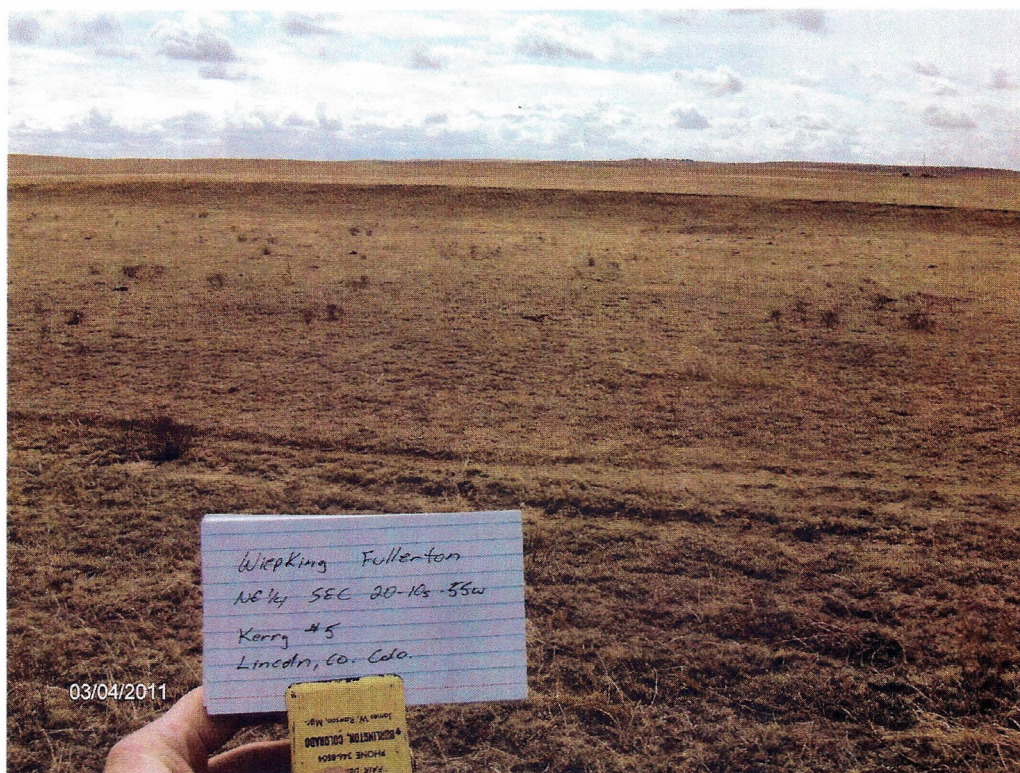 Wiepking Fullerton
NE 1/4 SEC 20-10s-55w
Kerry #5
Lincoln, Co. Colo.
03/04/2011
James W. Rawson, Mgr.
BURLINGTON, COLORADO
PHONE 346-8604
FAIR